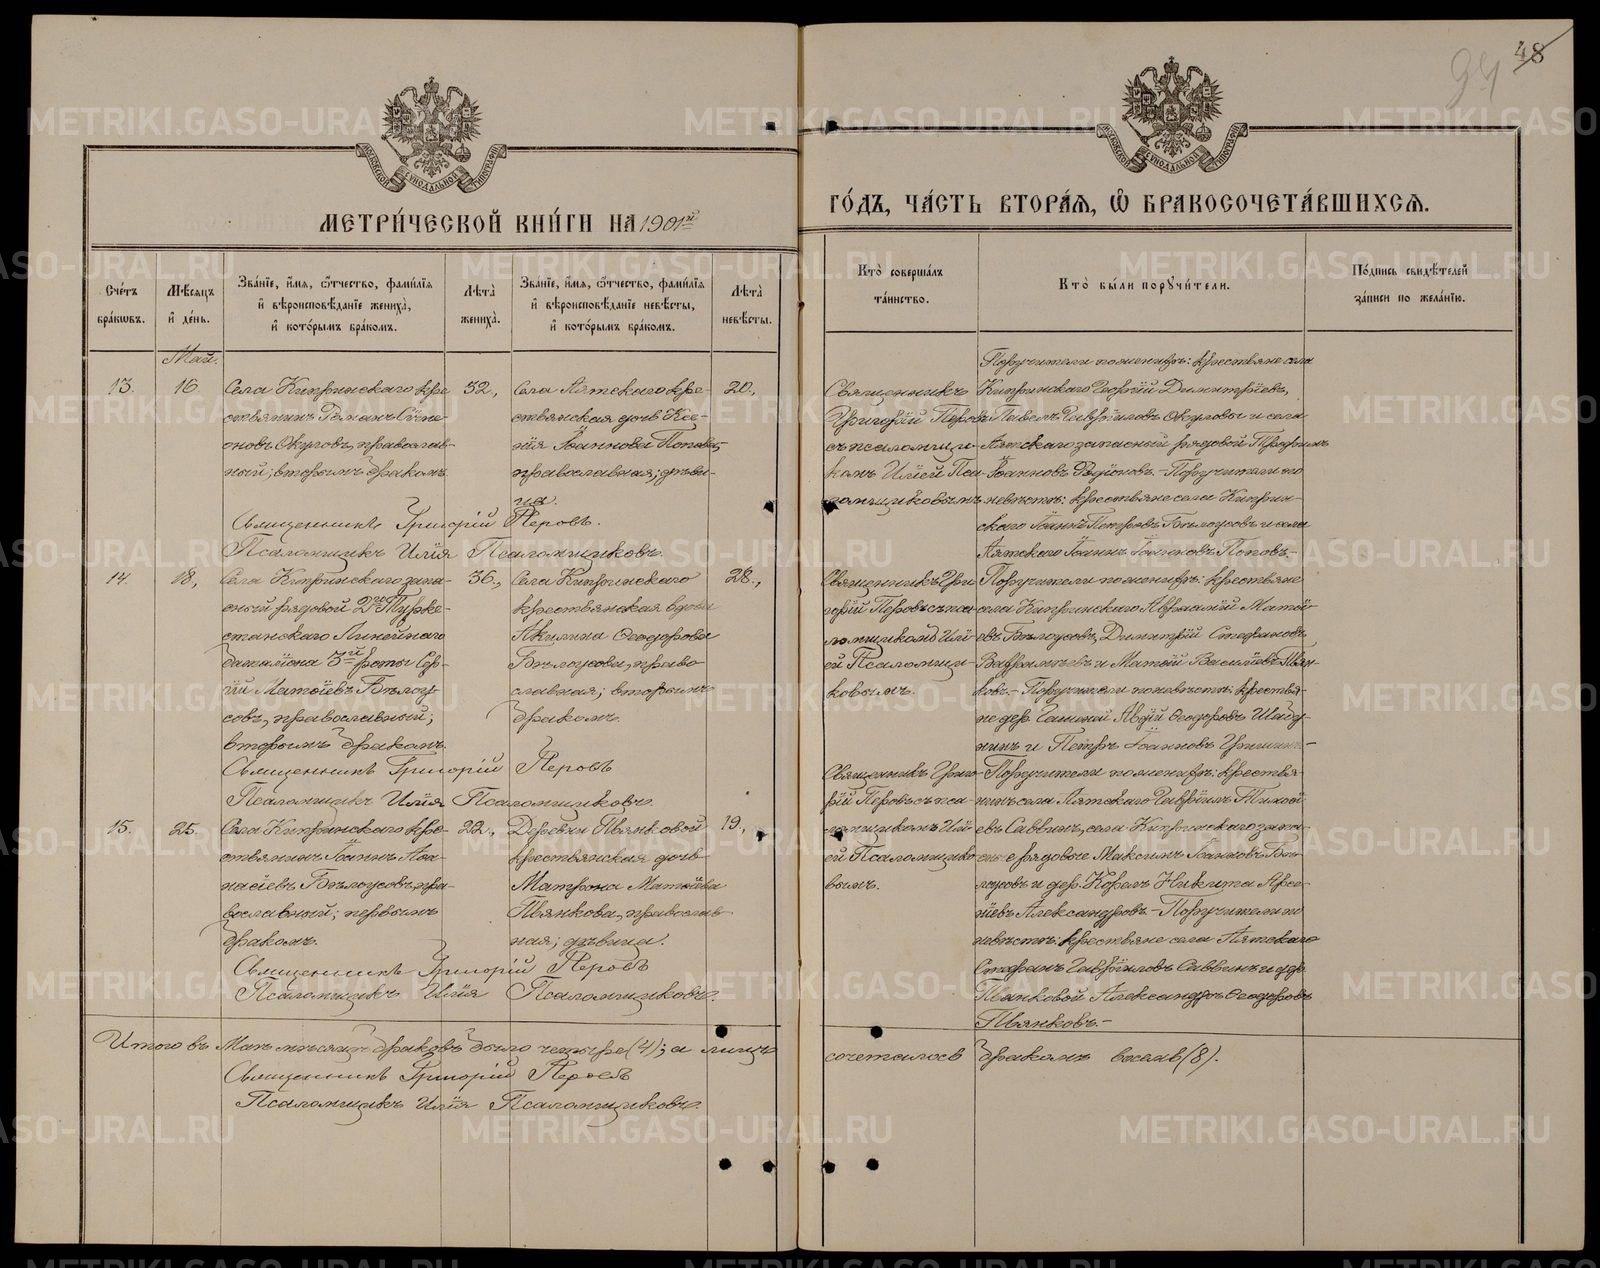 48
94
МОСКОВСКОЙ СѴНОДАЛЬНОЙ ТИПОГРАФІИ
МОСКОВСКОЙ СѴНОДАЛЬНОЙ ТИПОГРАФІИ
МЕТРИ́ЧЕСКОЙ КНИ́ГИ НА 1901й
ГО́ДЪ, ЧА́СТЬ ВТОРА́Я, Ѡ҆ БРАКОСОЧЕТА́ВШИХСЯ.
Сче́тъ бра́ковъ.
Мѣ́сяцъ и҆ де́нь.
Зва́нїе, и҆́мя, ѻ҆́тчество, фами́лїя и҆ вѣроисповѣ́данїе жениха̀, и҆ кото́рымъ бра́комъ.
Лѣ́та̀ жениха̀.
Зва́нїе, и҆́мя, ѻ҆́тчество, фами́лїя и҆ вѣроисповѣ́данїе невѣ́сты, и҆ кото́рымъ бра́комъ.
Лѣ́та̀ невѣ́сты.
Кто̀ соверша́лъ та́инство.
Кто̀ бы́ли поручи́тели.
По́дпись свидѣ́телей за́писи по жела́нїю.
Май.
13.
16
Села Кипринскаго кре-
стьянинъ Романъ Симе-
оновъ Окуловъ, православ-
ный; вторымъ бракомъ
32.,
Села Аятскаго кре-
стьянская дочь Ксе-
нія Іоаннова Попова,
православная; дѣви-
ца.
20.,
Священникъ
Григорій Перовъ
съ псаломщи-
комъ Иліей Пса-
ломщиковымъ
Поручители по женихѣ: крестьяне села
Кипринскаго Георгій Димитріевъ,
Павелъ Гавріиловъ Окуловы и села
Аятскаго запасный рядовой Трофимъ
Іоанновъ Родіоновъ. - Поручители по
невѣстѣ: крестьяне села Киприн-
скаго Іоаннъ Петровъ Бѣлоусовъ и села
Аятскаго Іоаннъ Іоанновъ Поповъ. -
Священникъ Григорій Перовъ.
Псаломщикъ Илія Псаломщиковъ.
14.
18,
Села Кипринскаго запа-
сный рядовой 2го Турке-
станскаго Линейнаго
баталіона 3й роты Сер-
гій Матѳіевъ Бѣлоу-
совъ, православный;
вторымъ бракомъ.
36.,
Села Кипринскаго
крестьянская вдова
Акилина Ѳеодорова
Бѣлоусова, право
славная; вторымъ
бракомъ.
28.,
Священникъ Гри
горій Перовъ съ пса
ломщикомъ Илі-
ей Псаломщи-
ковымъ.
Поручители по женихѣ: крестьяне
села Кипринскаго Аѳанасій Матѳі-
евъ Бѣлоусовъ, Димитрій Стефановъ
и Матѳій Васильевъ Пьян-
ковъ. - Поручители по невѣстѣ: крестья-
не дер. Авдій Ѳеодоровъ
и Петръ Іоанновъ
Священникъ Григорій Перовъ
Псаломщикъ Илія Псаломщиковъ.
15.
25.
Села Кипринскаго кре-
стьянинъ Іоаннъ Аѳа-
насіевъ Бѣлоусовъ, пра-
вославный; первымъ
бракомъ.
22.,
Деревни Пьянковой
крестьянская дочь
Матрона Матѳіева
Пьянкова, православ-
ная; дѣвица.
19.,
Священникъ Григо-
рій Перовъ съ пса
ломщикомъ Илі-
ей Псаломщико
вымъ.
Поручители по женихѣ: крестья-
нинъ села Аятскаго Гавріилъ Тимоѳ
евъ Саввинъ, села Кипринскаго запа-
сные рядовые Максимъ Іоанновъ Бѣ-
лоусовъ и дер. Никита Арсе-
ніевъ Александровъ. - Поручители по
невѣстѣ: крестьяне села Аятскаго
Стефанъ Гавріиловъ Саввинъ и дер.
Пьянковой Александръ Ѳеодоровъ
Пьянковъ. -
Священникъ Григорій Перовъ
Псаломщикъ Илія Псаломщиковъ.
Итого въ Маѣ мѣсяцѣ браковъ было четыре (4); а лицъ сочеталось бракомъ восемь (8).
Священникъ Григорій Перовъ
Псаломщикъ Илія Псаломщиковъ.
METRIKI.GASO-URAL.RU